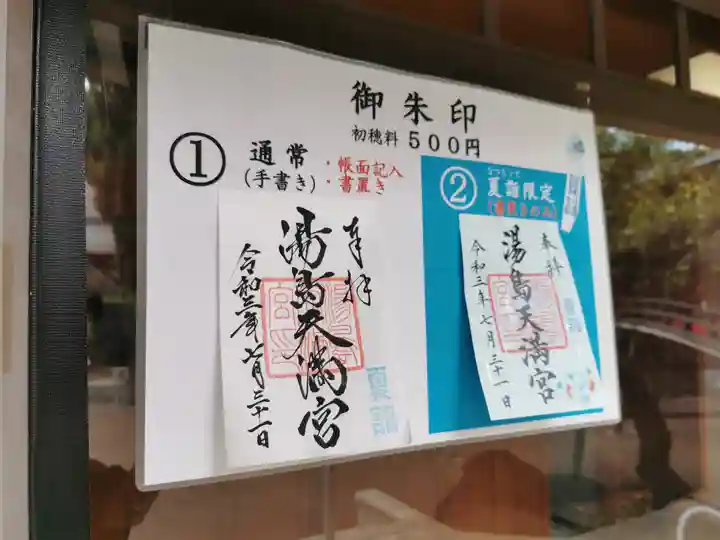 御朱印
初穂料 500円
① 通常 ・帳面記入
(手書き) ・書置き
奉拝
湯島天満宮
令和三年七月三十一日
夏詣
② 夏詣限定
(書置きのみ)
奉拝
湯島天満宮
令和三年七月三十一日